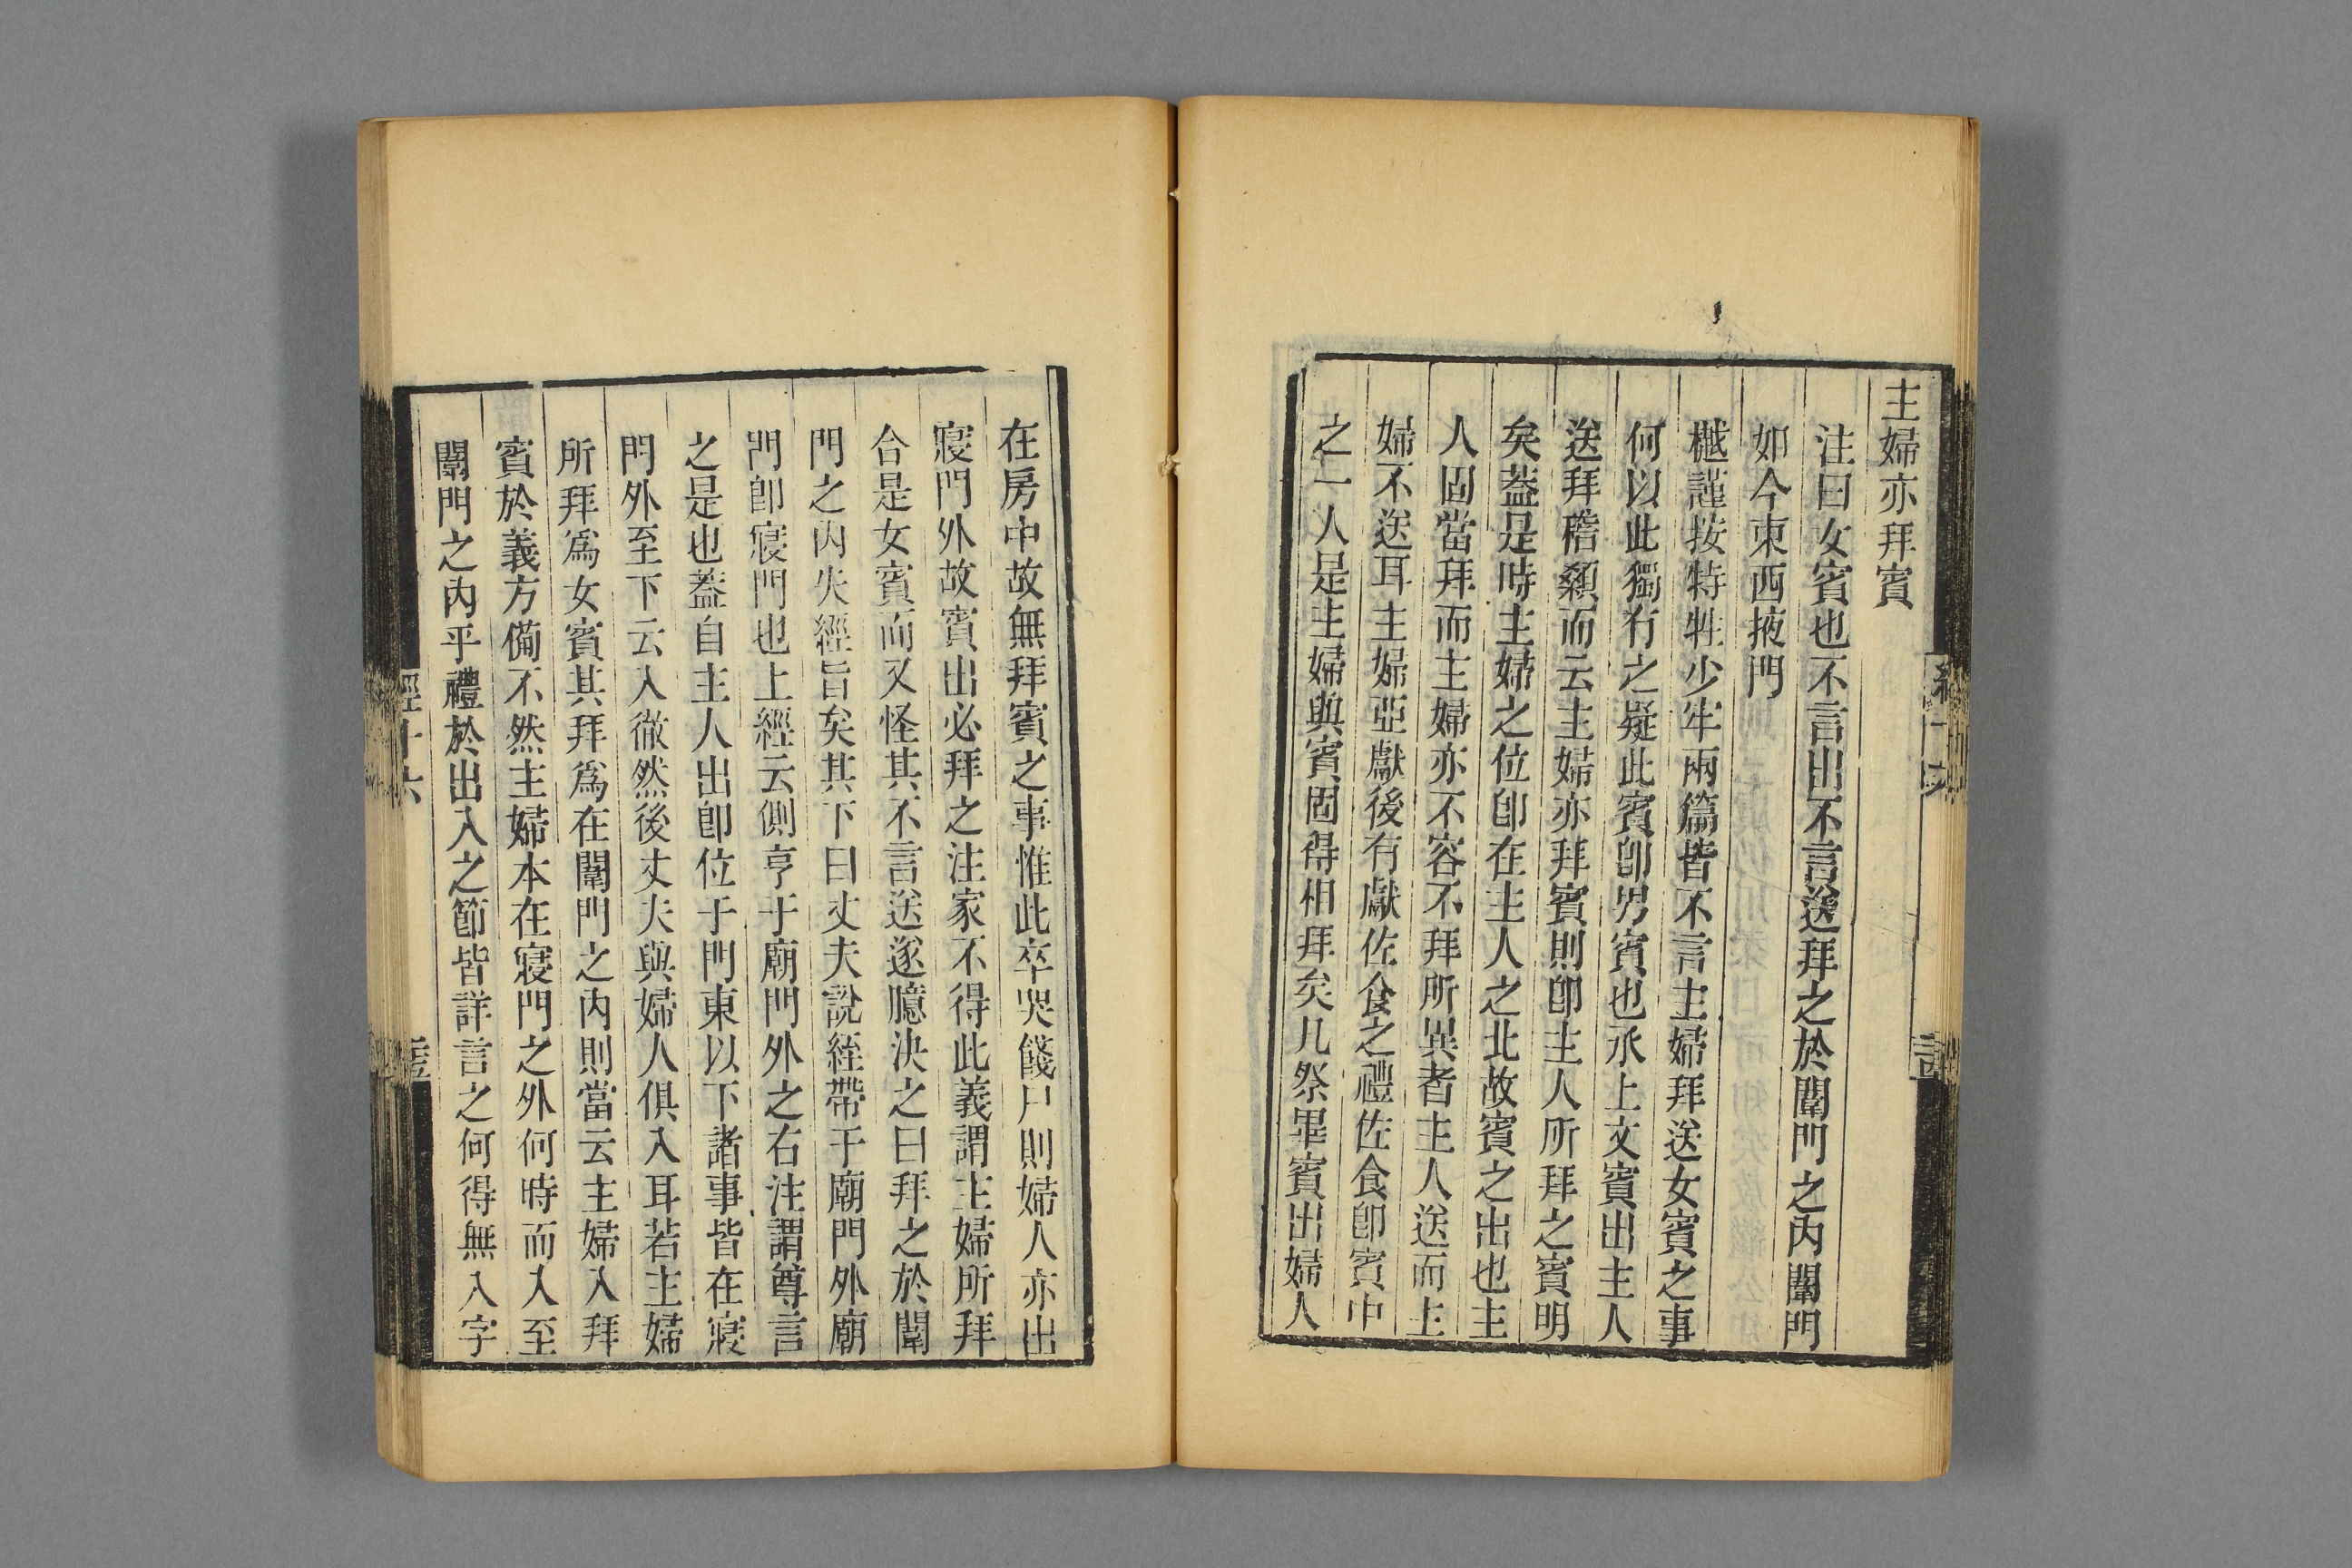 主婦亦拜賓
注曰女賓也不言出不言送拜之於闈門之內闈門
如今東西掖門
樾謹按特牲少牢兩篇皆不言主婦拜送女賓之事
何以此獨有之疑此賓卽男賓也承上文賓出主人
送拜稽顙而云主婦亦拜賓則卽主人所拜之賓明
矣蓋是時主婦之位卽在主人之北故賓之出也主
人固當拜而主婦亦不容不拜所異者主人送而主
婦不送耳主婦亞獻後有獻佐食之禮佐食卽賓中
之一人是主婦與賓固得相拜矣凡祭畢賓出婦人
在房中故無拜賓之事惟此卒哭餞尸則婦人亦出
寢門外故賓出必拜之注家不得此義謂主婦所拜
合是女賓而又怪其不言送遂臆決之曰拜之於闈
門之內失經旨矣其下曰丈夫說絰帶于廟門外廟
門卽寢門也上經云側亨于廟門外之右注謂尊言
之是也蓋自主人出卽位于門東以下諸事皆在寢
門外至下云入徹然後丈夫與婦人俱入耳若主婦
所拜爲女賓其拜爲在闈門之內則當云主婦入拜
賓於義方備不然主婦本在寢門之外何時而入至
闈門之內乎禮於出入之節皆詳言之何得無入字
經十六